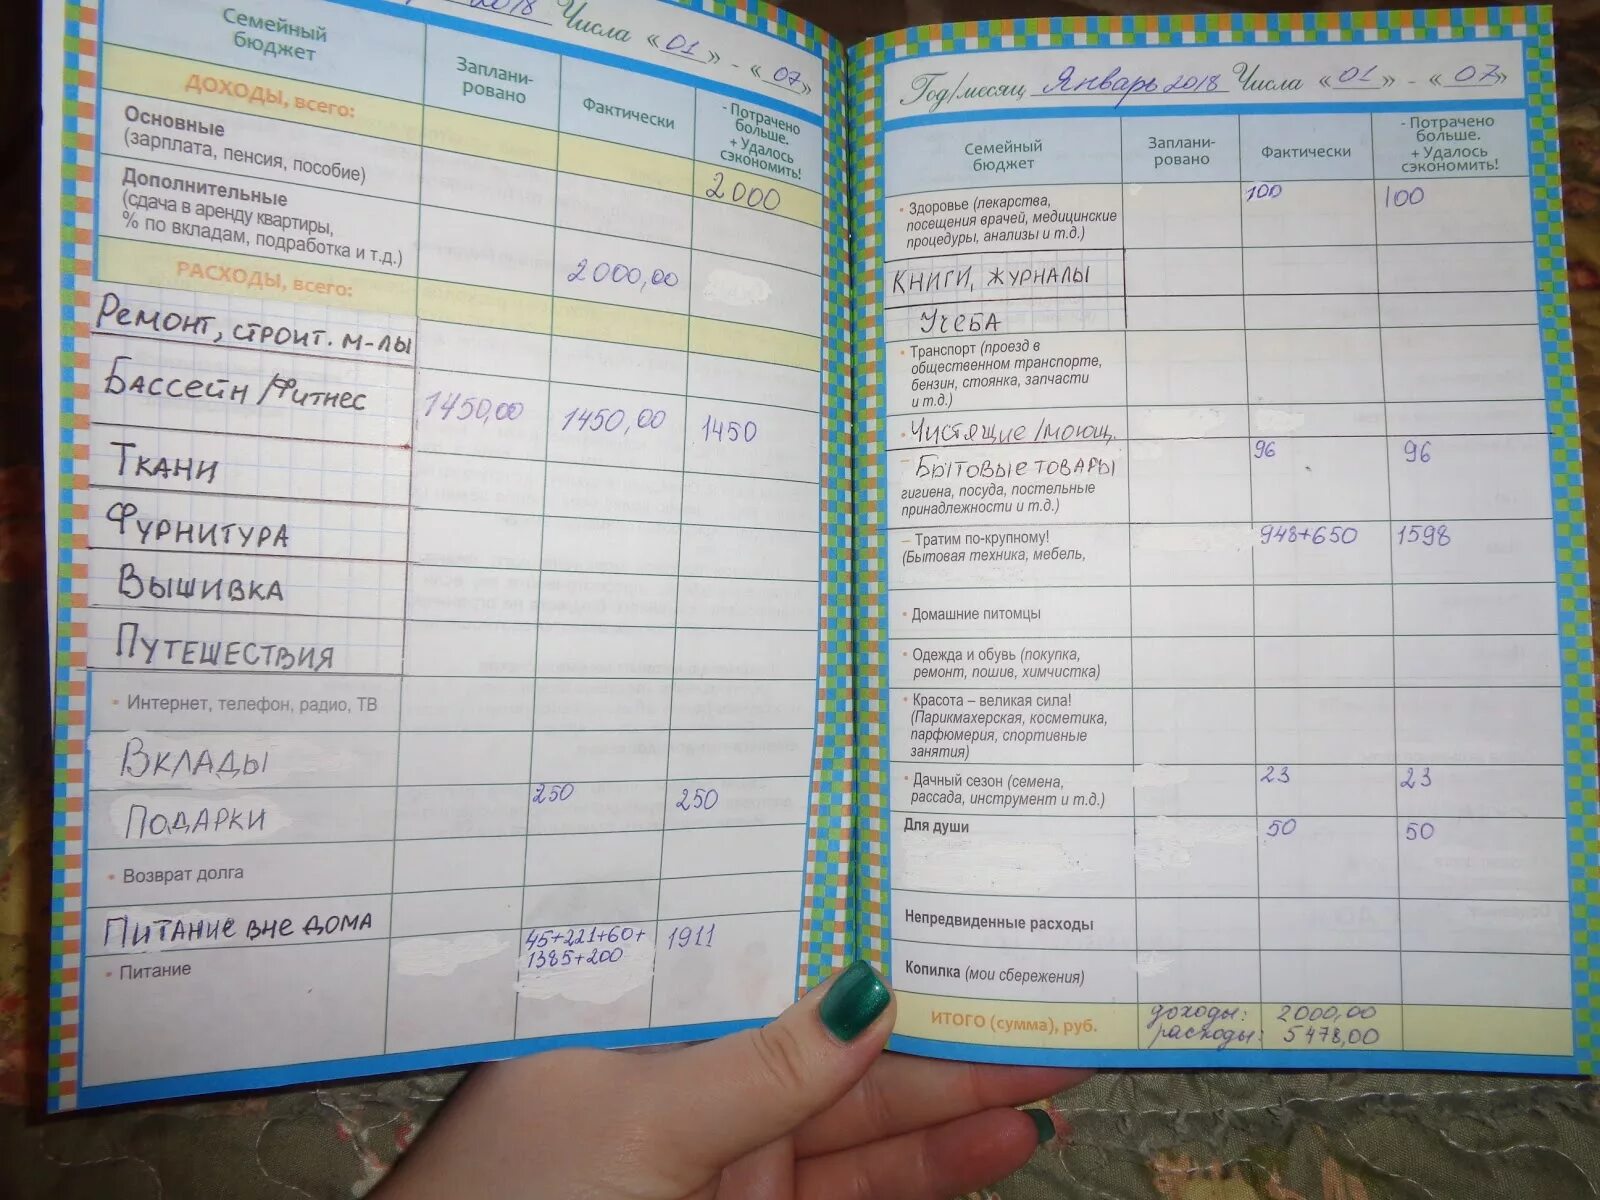 2018 Числа «01» - «07»
Семейный
бюджет
Заплани-
ровано
Фактически
- Потрачено
больше.
+ Удалось
сэкономить!
ДОХОДЫ, всего:
2000
Основные
(зарплата, пенсия, пособие)
Дополнительные
(сдача в аренду квартиры,
% по вкладам, подработка и т.д.)
2000,00
РАСХОДЫ, всего:
Ремонт, строит. м-лы
Бассейн/Фитнес 1450,00 1450,00 1450
Ткани
Фурнитура
Вышивка
Путешествия
• Интернет, телефон, радио, ТВ
Вклады
Подарки 250 250
• Возврат долга
Питание вне дома
• Питание
45+221+60+
1385+200
1911
Год/месяц Январь 2018 Числа «01» - «07»
Семейный
бюджет
Заплани-
ровано
Фактически
- Потрачено
больше.
+ Удалось
сэкономить!
• Здоровье (лекарства,
посещения врачей, медицинские
процедуры, анализы и т.д.)
100 100
Книги, журналы
Учеба
• Транспорт (проезд в
общественном транспорте,
бензин, стоянка, запчасти
и т.д.)
Чистящие/моющ.
– Бытовые товары
гигиена, посуда, постельные
принадлежности и т.д.)
96 96
– Тратим по-крупному!
(Бытовая техника, мебель,
948+650 1598
• Домашние питомцы
• Одежда и обувь (покупка,
ремонт, пошив, химчистка)
• Красота – великая сила!
(Парикмахерская, косметика,
парфюмерия, спортивные
занятия)
• Дачный сезон (семена,
рассада, инструмент и т.д.)
23 23
Для души 50 50
Непредвиденные расходы
Копилка (мои сбережения)
ИТОГО (сумма), руб.
доходы: 2000,00
расходы: 5478,00